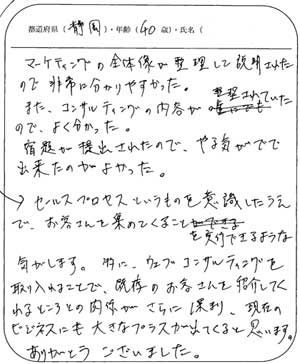 都道府県(静岡)・年齢(40歳)・氏名(
マーケティングの全体像が整理して説明された
ので非常に分かりやすかった。
また、コンサルティングの内容が整理されていた
ので、よく分かった。
宿題が提出されたので、やる気がでて
出来たのがよかった。
→セールスプロセスというものを意識したうえ
で、お客さんを集めてくること
を実行できるような
気がします。特に、ウェブコンサルティングを
取り入れることで、既存のお客さんを紹介してく
れるところとの関係がさらに深まり、現在の
ビジネスにも大きなプラスが出てくると思います。
ありがとうございました。